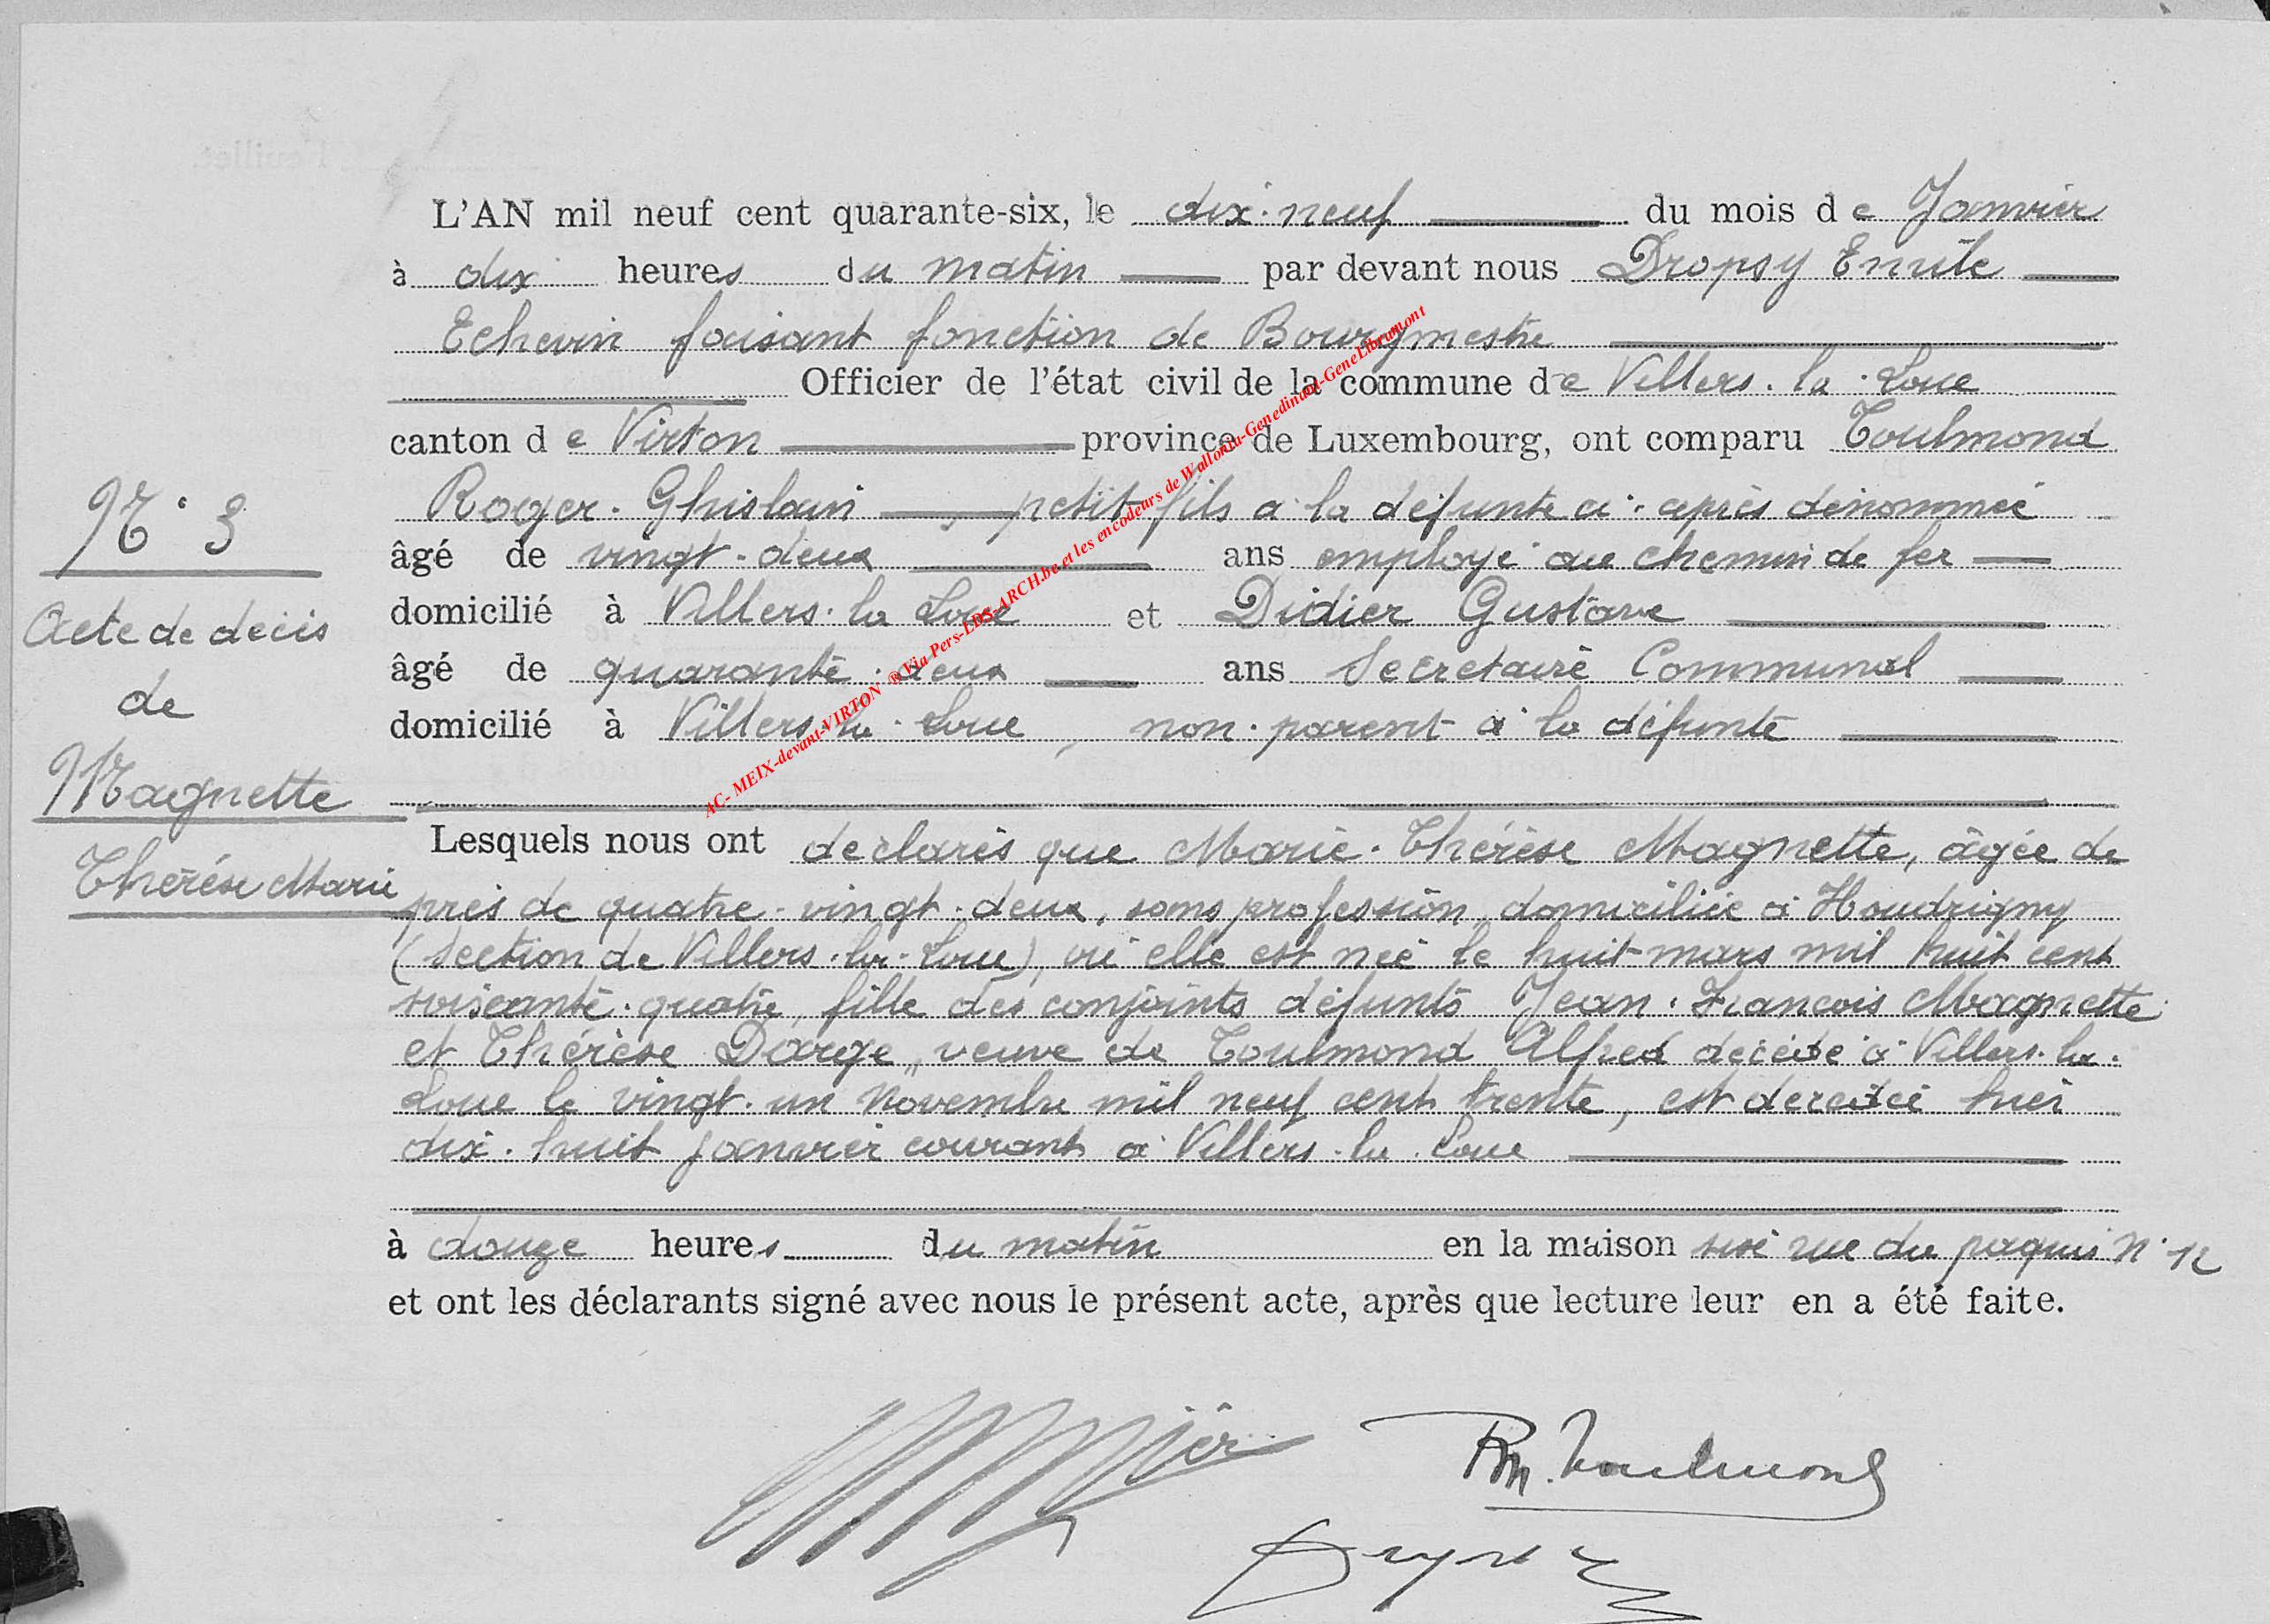 L'AN mil neuf cent quarante-six, le dix-neuf du mois de Janvier
à dix heures du matin par devant nous Dropsy Emile
Echevin faisant fonction de Bourgmestre
Officier de l'état civil de la commune de Villers-la-Loue
canton de Virton province de Luxembourg, ont comparu Toulmond
Roger-Ghislain, petit-fils à la défunte ci-après dénommée
âgé de vingt-deux ans employé au chemin de fer
domicilié à Villers-la Loue et Didier Gustave
âgé de quarante-deux ans Secrétaire Communal
domicilié à Villers-la-Loue, non-parent à la défunte
N° 3
Acte de décès
de
Magnette
Thérèse Marie
Lesquels nous ont declarés que Marie-Thérèse Magnette, âgée de
près de quatre-vingt-deux, sans profession, domiciliée à Houdrigny
(Section de Villers-la-Loue), où elle est née le huit mars mil huit cent
soixante-quatre, fille des conjoints défunts Jean-François Magnette
et Thérèse Darge, veuve de Toulmond Alfred décédé à Villers-la-
Loue le vingt-un Novembre mil neuf cent trente, est décédée hier
dix-huit janvier courant à Villers-la-Loue
à douze heures du matin en la maison sise rue du paquis N° 12
et ont les déclarants signé avec nous le présent acte, après que lecture leur en a été faite.
Rm. Toulmond
Dropsy
AC- MEIX-devant-VIRTON ® Via Pers-LDS-ARCH.be et les encodeurs de Wallonia-Genedinant-GeneLibramont